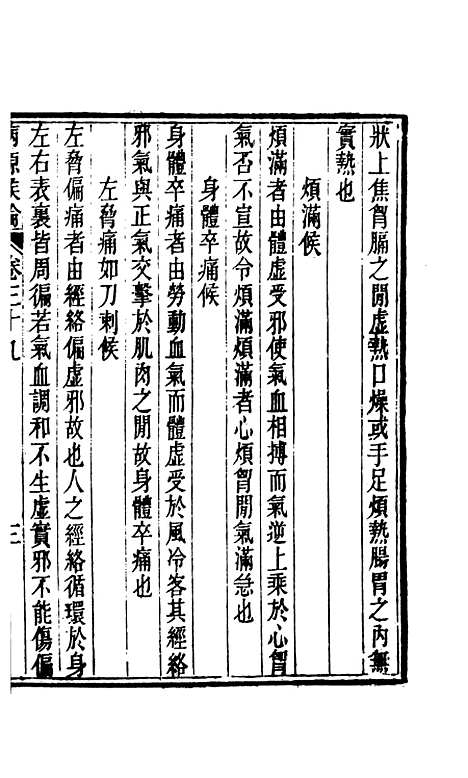 狀上焦胷膈之閒虛熱口燥或手足煩熱腸胃之內無
實熱也
煩滿候
煩滿者由體虛受邪使氣血相搏而氣逆上乘於心胷
氣否不宣故令煩滿煩滿者心煩胷閒氣滿急也
身體卒痛候
身體卒痛者由勞動血氣而體虛受於風冷客其經絡
邪氣與正氣交擊於肌肉之閒故身體卒痛也
左脅痛如刀刺候
左脅偏痛者由經絡偏虛邪故也人之經絡循環於身
左右表裏皆周徧若氣血調和不生虛實邪不能傷偏
病源候論 卷三十九 三